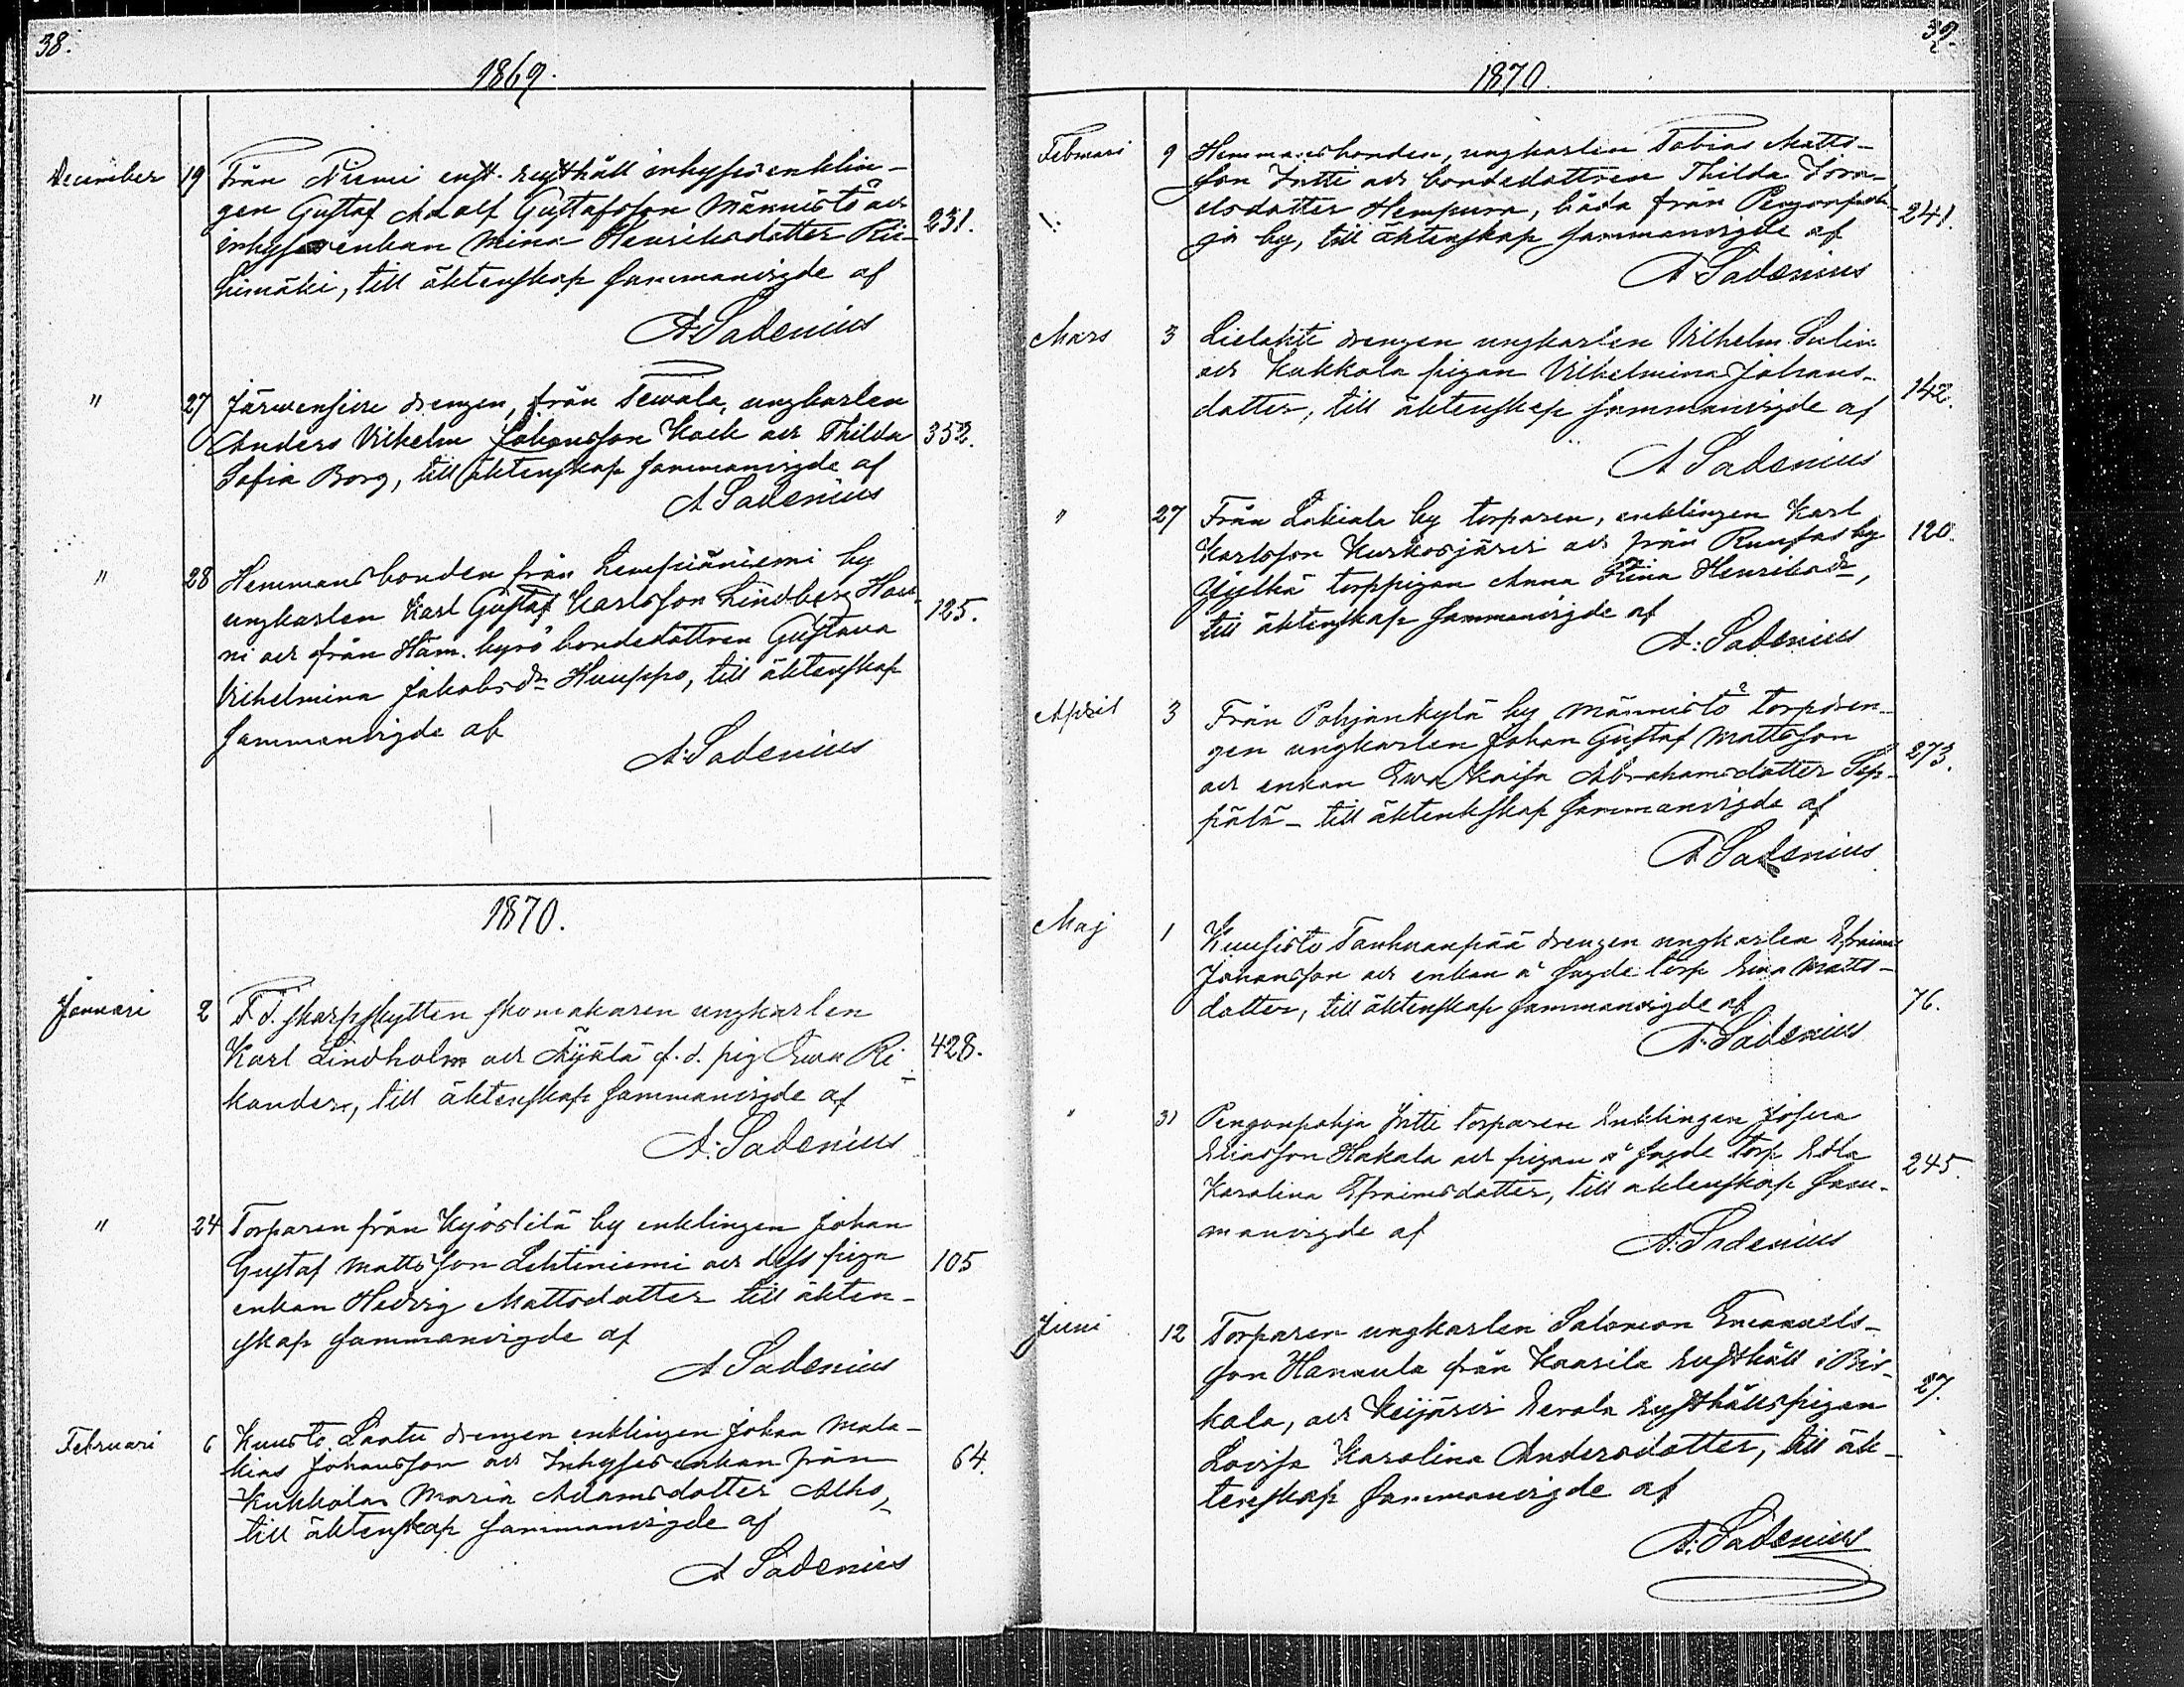 38.
1869.
December 19 Från Niemi rusthåll inhysesenklin-
gen Gustaf Adolf Gustafsson Männistö och
inhysesenkan Mina Henriksdotter Rii- 231.
himäki, till äktenskap sammanvigde af
A. Sadenius
" 27 Järvensivu drengen, från Tevala, ungkarlen
Anders Vilhelm Johansson Kock och Thilda 352.
Sofia Borg, till äktenskap sammanvigde af
A Sadenius
" 28 Hemmansbonden från Lempiäniemi by
ungkarlen Karl Gustaf Karlsson Lindberg Hau- 125.
ni och från Tam. kyrö bondedottren Gustava
Vilhelmina Jakobsdr Huuppo, till äktenskap
sammanvigde af
A. Sadenius
1870.
Januari 2 F. d. skarpskytten skomakaren ungkarlen
Karl Lindholm och f. d. pig Ewa Ri- 428.
kander, till äktenskap sammanvigde af
A. Sadenius
" 24 Torparen från Kyöstilä by enklingen Johan
Gustaf Mattsson Lehtiniemi och dess piga 105
enkan Hedvig Mattsdotter till äkten-
skap sammanvigde af
A Sadenius
Februari 6 Kuusto Laatu drengen enklingen Johan Mala-
kias Johansson och Inhysesenkan från 64.
Kukkola Maria Adamsdotter Alho,
till äktenskap sammanvigde af
A Sadenius
39.
1870.
Februari 9 Hemmansbonden, ungkarlen Tobias Matts-
son Jutti och bondedottren Thilda Isra-
elsdotter Hempura, båda från Pengonpoh- 241.
ja by, till äktenskap sammanvigde af
A Sadenius
Mars 3 Lielahti drengen ungkarlen Vilhelm Sulin
och Kukkola pigan Vilhelmina Johans- 142.
dotter, till äktenskap sammanvigde af
A Sadenius
" 27 Från Lakiala by torparen, enklingen Karl
Karlsson Kurkosjärvi och från Runsas by 120.
torppigan Anna Stina Henriksdr,
till äktenskap sammanvigde af
A: Sadenius
April 3 Från Pohjankylä by Männistö torpdren-
gen ungkarlen Johan Gustaf Mattsson
och enkan Ewa Kaisa Abrahamsdotter Sep- 273.
pälä – till äktenkskap sammanvigde af
A Sadenius
Maj 1 Kuusisto Tanhuanpää drengen ungkarlen Efraim
Johansson och enkan å sagde torp Ewa Matts-
dotter, till äktenskap sammanvigde af 76.
A. Sadenius
" 31 Pengonpohja Jutti torparen Enklingen Josua
Eliasson Hakala och pigan å sagde torp Edla 245
Karolina Efraimsdotter, till äktenskap sam-
manvigde af
A. Sadenius
Juni 12 Torparen ungkarlen Salomon Emanuels-
son Hannula från Kaarila Rusthåll i Bir-
kala, och Keijärvi Eerola Rusthållspigan 27.
Lovisa Karolina Andersdotter, till äk-
tenskap sammanvigde af
A: Sadenius